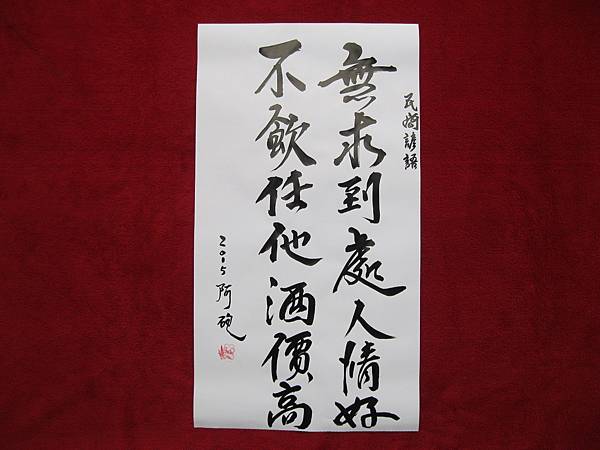 民間諺語
無求到處人情好
不飲任他酒價高
2015 阿砲